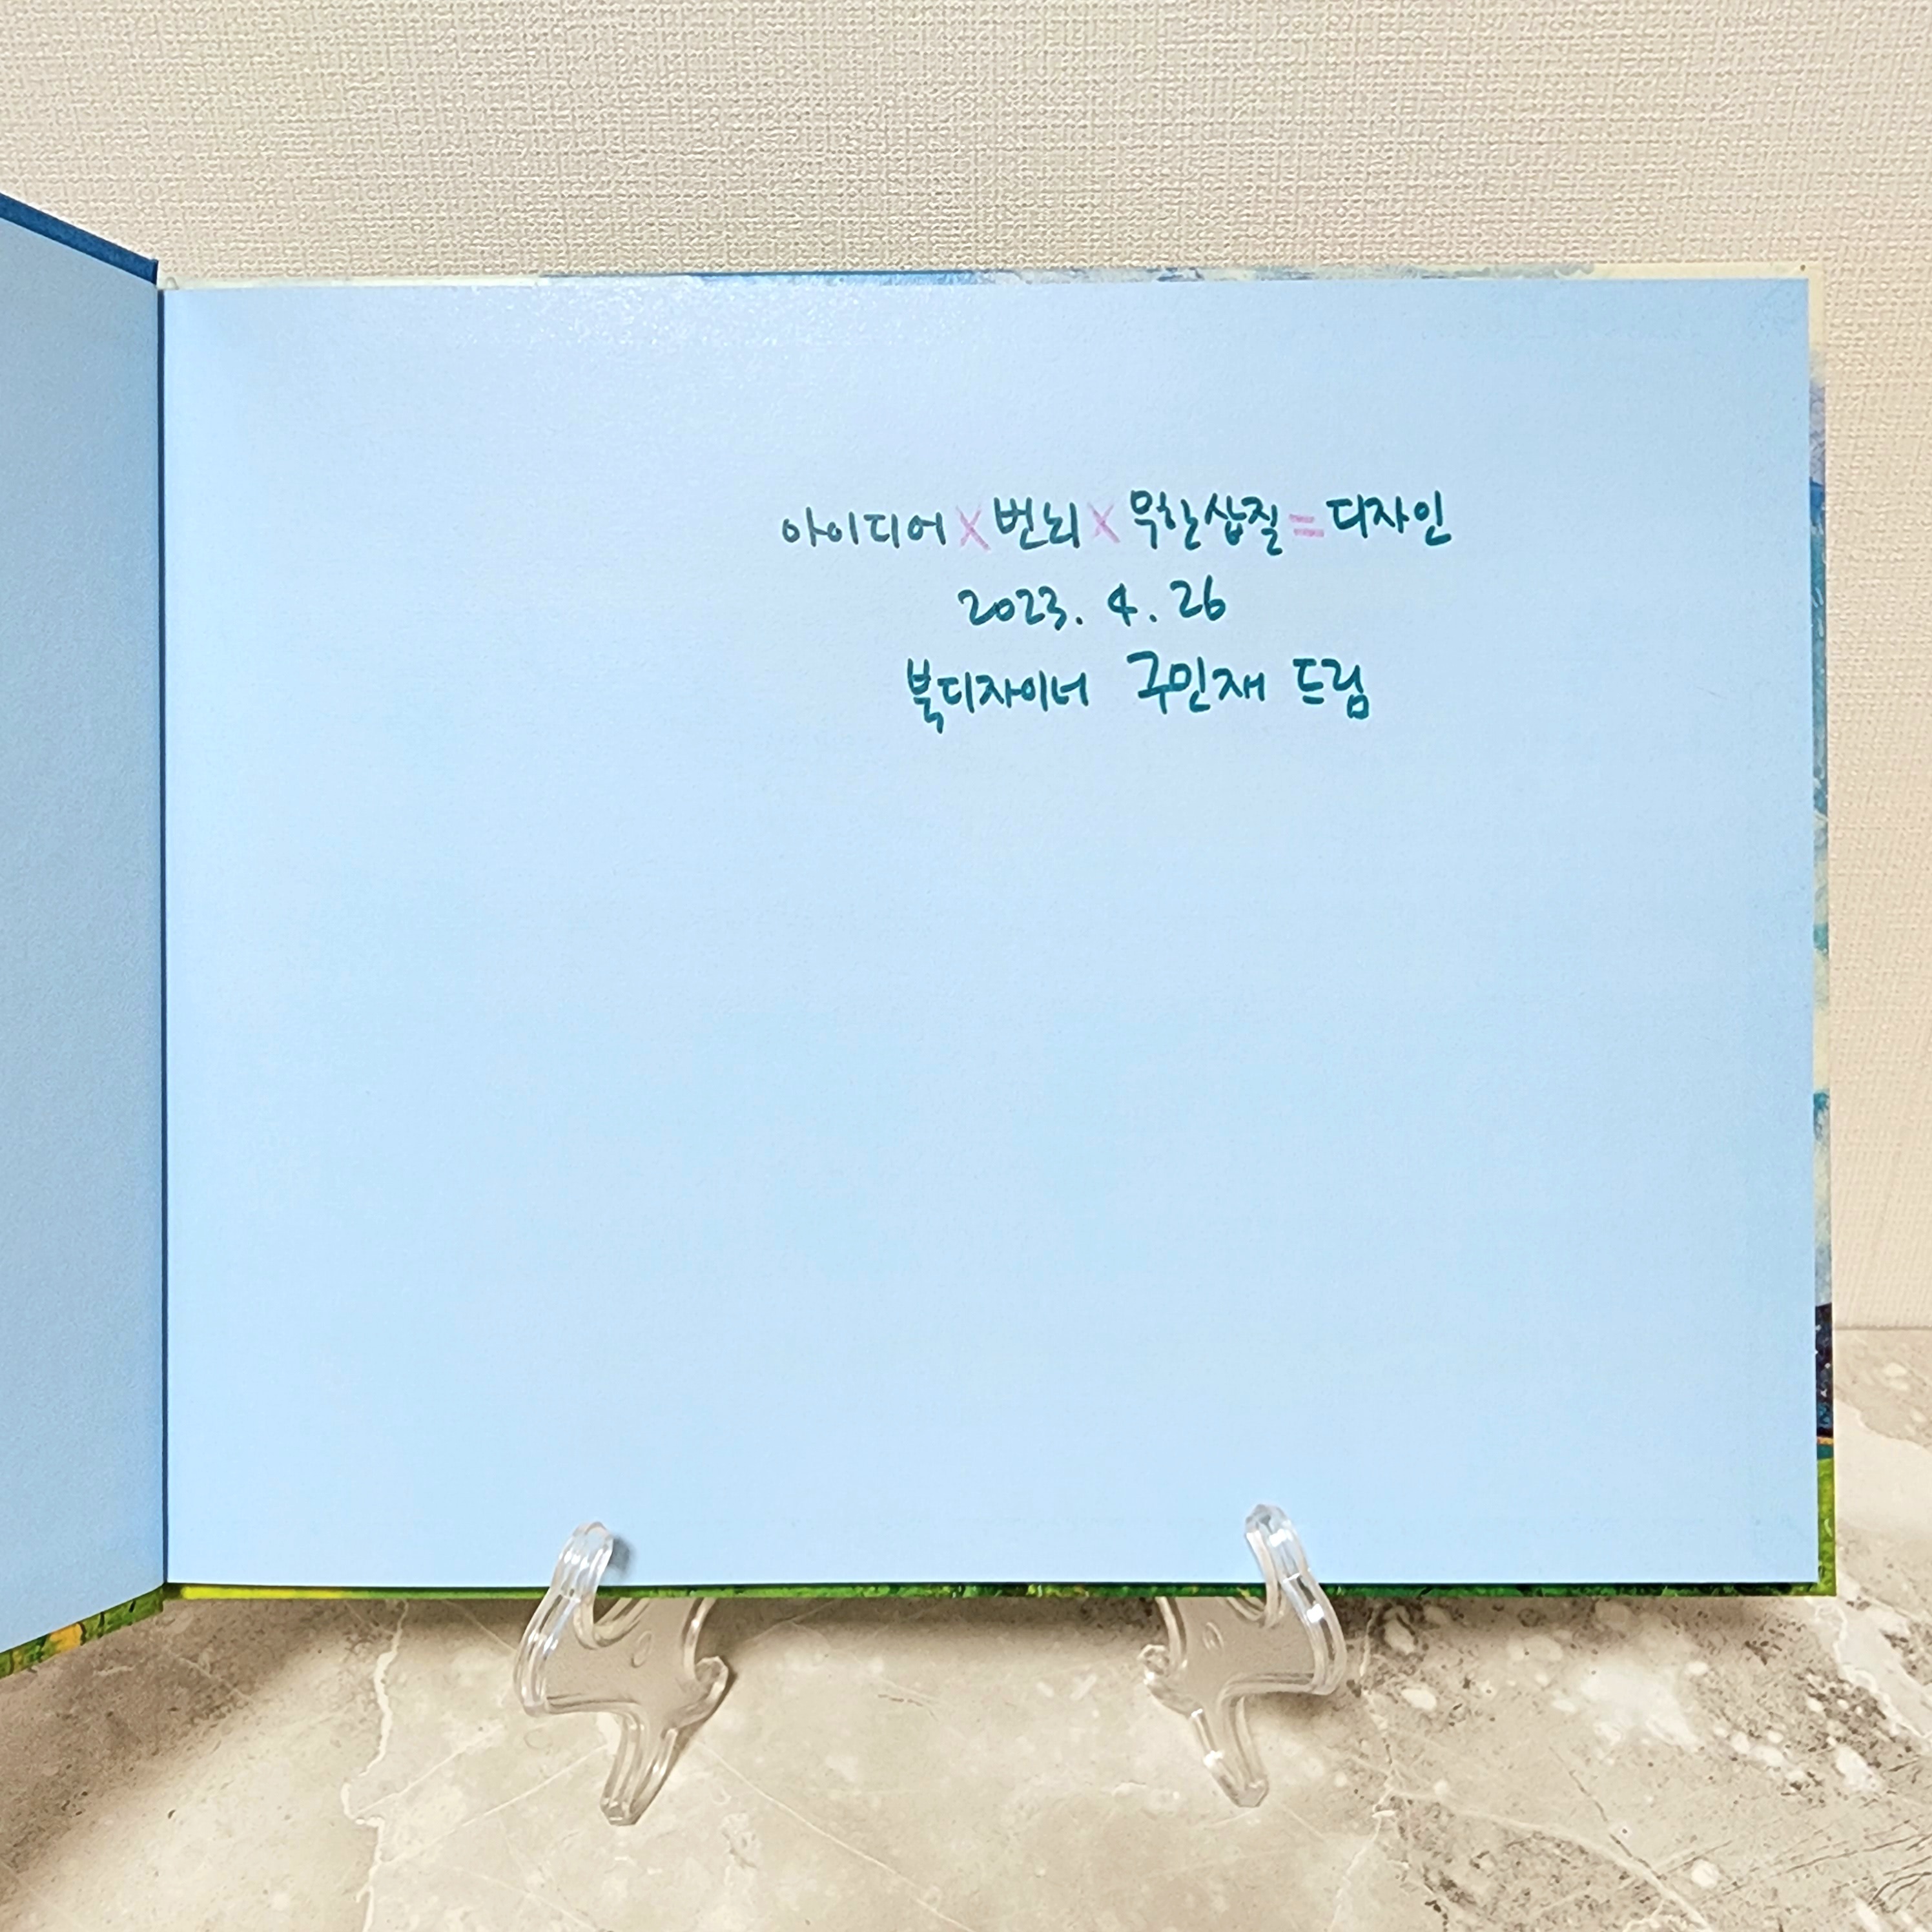 아이디어 X 번뇌 X 무한삽질 = 디자인
2023. 4. 26
북디자이너 구민재 드림